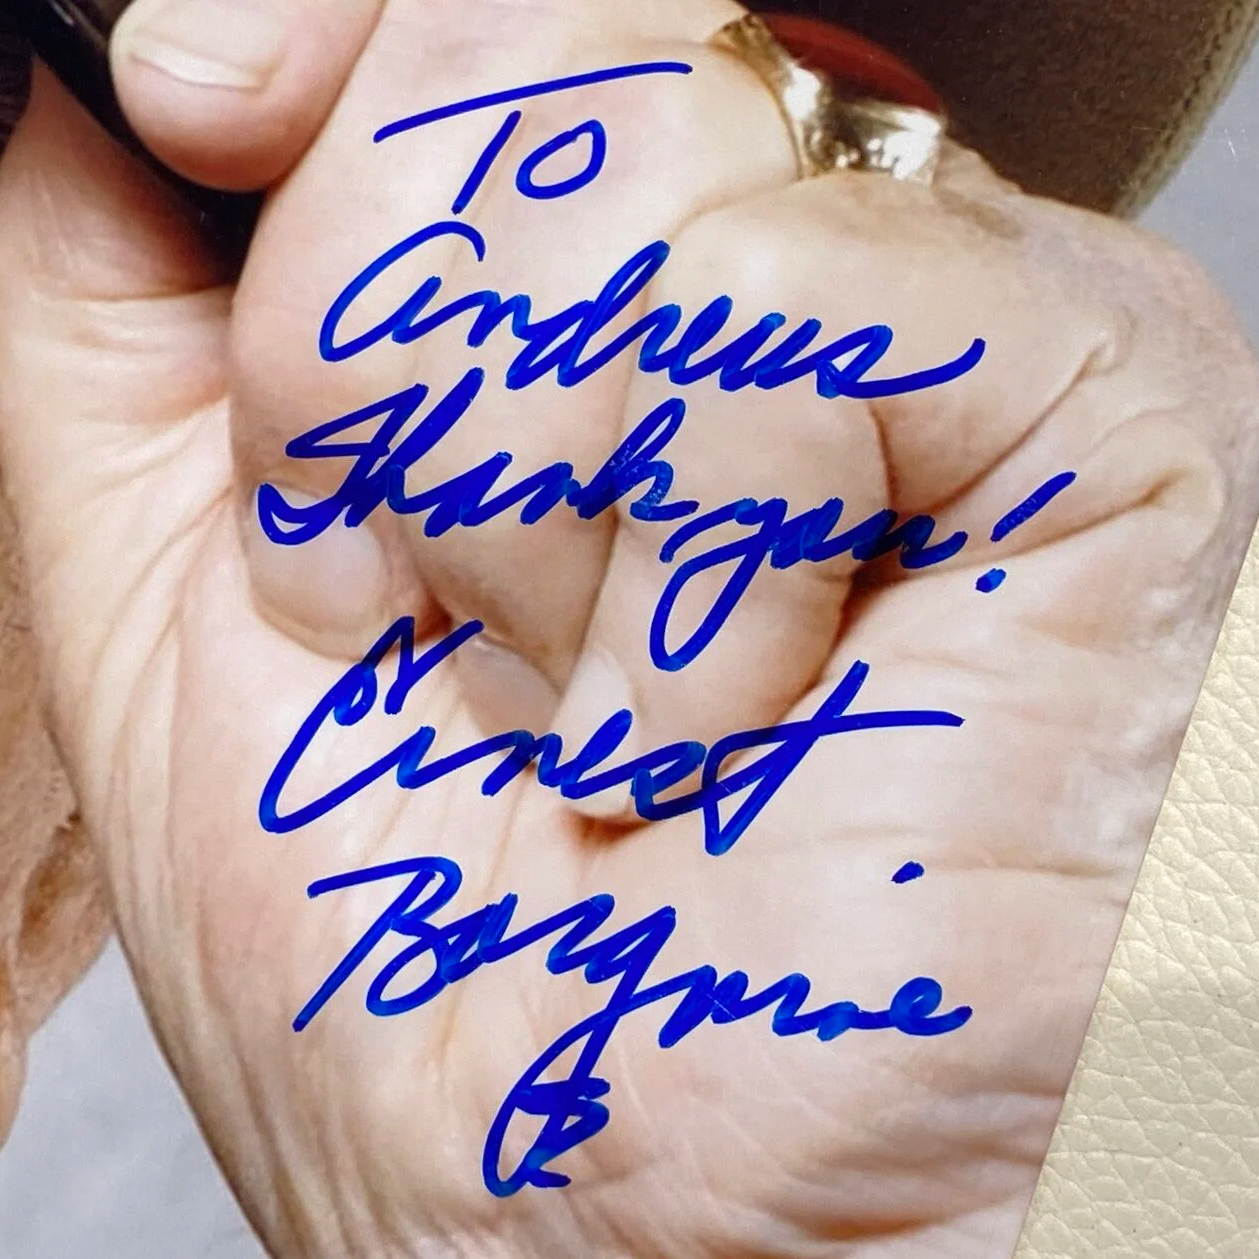 To
Andreas
Thank you!
Ernest
Borgnine